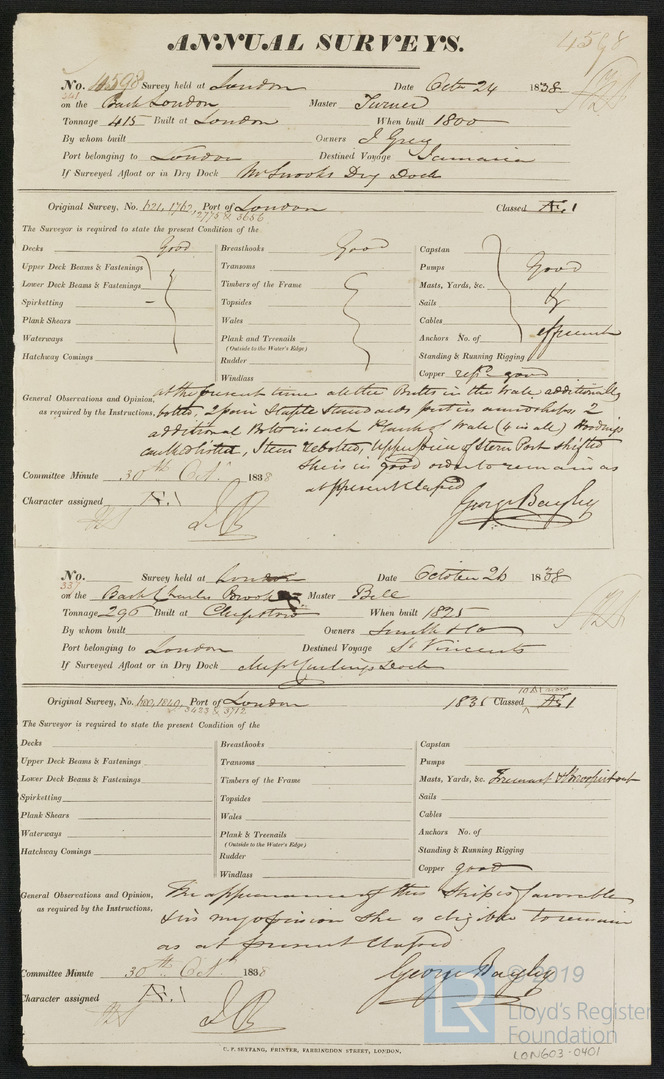 ANNUAL SURVEYS.
4598
No. 4598 Survey held at London Date Octr 24 1838
on the Bark London Master Turner
Tonnage 415 Built at London When built 1800
By whom built Owners J Grey
Port belonging to London Destined Voyage Jamaica
If Surveyed Afloat or in Dry Dock Mr Snooks Dry Dock
Original Survey, No. 621, 1762, 2775 & 3656 Port of London Classed Æ 1
The Surveyor is required to state the present Condition of the
Decks Good
Upper Deck Beams & Fastenings
Lower Deck Beams & Fastenings
Spirketting
Plank Shears
Waterways
Hatchway Comings
Breasthooks Good
Transoms
Timbers of the Frame
Topsides
Wales
Plank and Treenails
(Outside to the Water's Edge)
Rudder
Windlass
Capstan
Pumps Good
Masts, Yards, &c. &
Sails
Cables
Anchors No. of efficient
Standing & Running Rigging
Copper repd good
General Observations and Opinion, at the present time all the Butts in the Wale additionally
as required by the Instructions, bolted, 2 pair Staple Standards put in amidships, 2
additional Bolts in each Plank of Wale (4 in all) Hoodings
caulked, Stem rebolted, Upper piece of Stern Post shifted
She is in good order to remain as
at present Classed
Committee Minute 30th Oct. 1838
Character assigned Æ 1
George Bayley
No. 337 Survey held at London Date October 26 1838
on the Bark Charles Master Bell
Tonnage 296 Built at Chepstow When built 1825
By whom built Owners Smith & Co
Port belonging to London Destined Voyage St Vincents
If Surveyed Afloat or in Dry Dock Messrs Curlings Dock
Original Survey, No. 1840, 3423 & 3712 Port of London 1835 Classed Æ 1
The Surveyor is required to state the present Condition of the
Decks
Upper Deck Beams & Fastenings
Lower Deck Beams & Fastenings
Spirketting
Plank Shears
Waterways
Hatchway Comings
Breasthooks
Transoms
Timbers of the Frame
Topsides
Wales
Plank & Treenails
(Outside to the Water's Edge)
Rudder
Windlass
Capstan
Pumps
Masts, Yards, &c. Foremast &
Sails
Cables
Anchors No. of
Standing & Running Rigging
Copper good
General Observations and Opinion, The appearance of this Ship is favorable
as required by the Instructions, & it is my opinion She is eligible to remain
as at present Classed
Committee Minute 30th Oct. 1838
Character assigned Æ 1
George Bayley
C. F. SEYFANG, PRINTER, FARRINGDON STREET, LONDON.
LR © 2019
Lloyd's Register
Foundation
LON603-0401